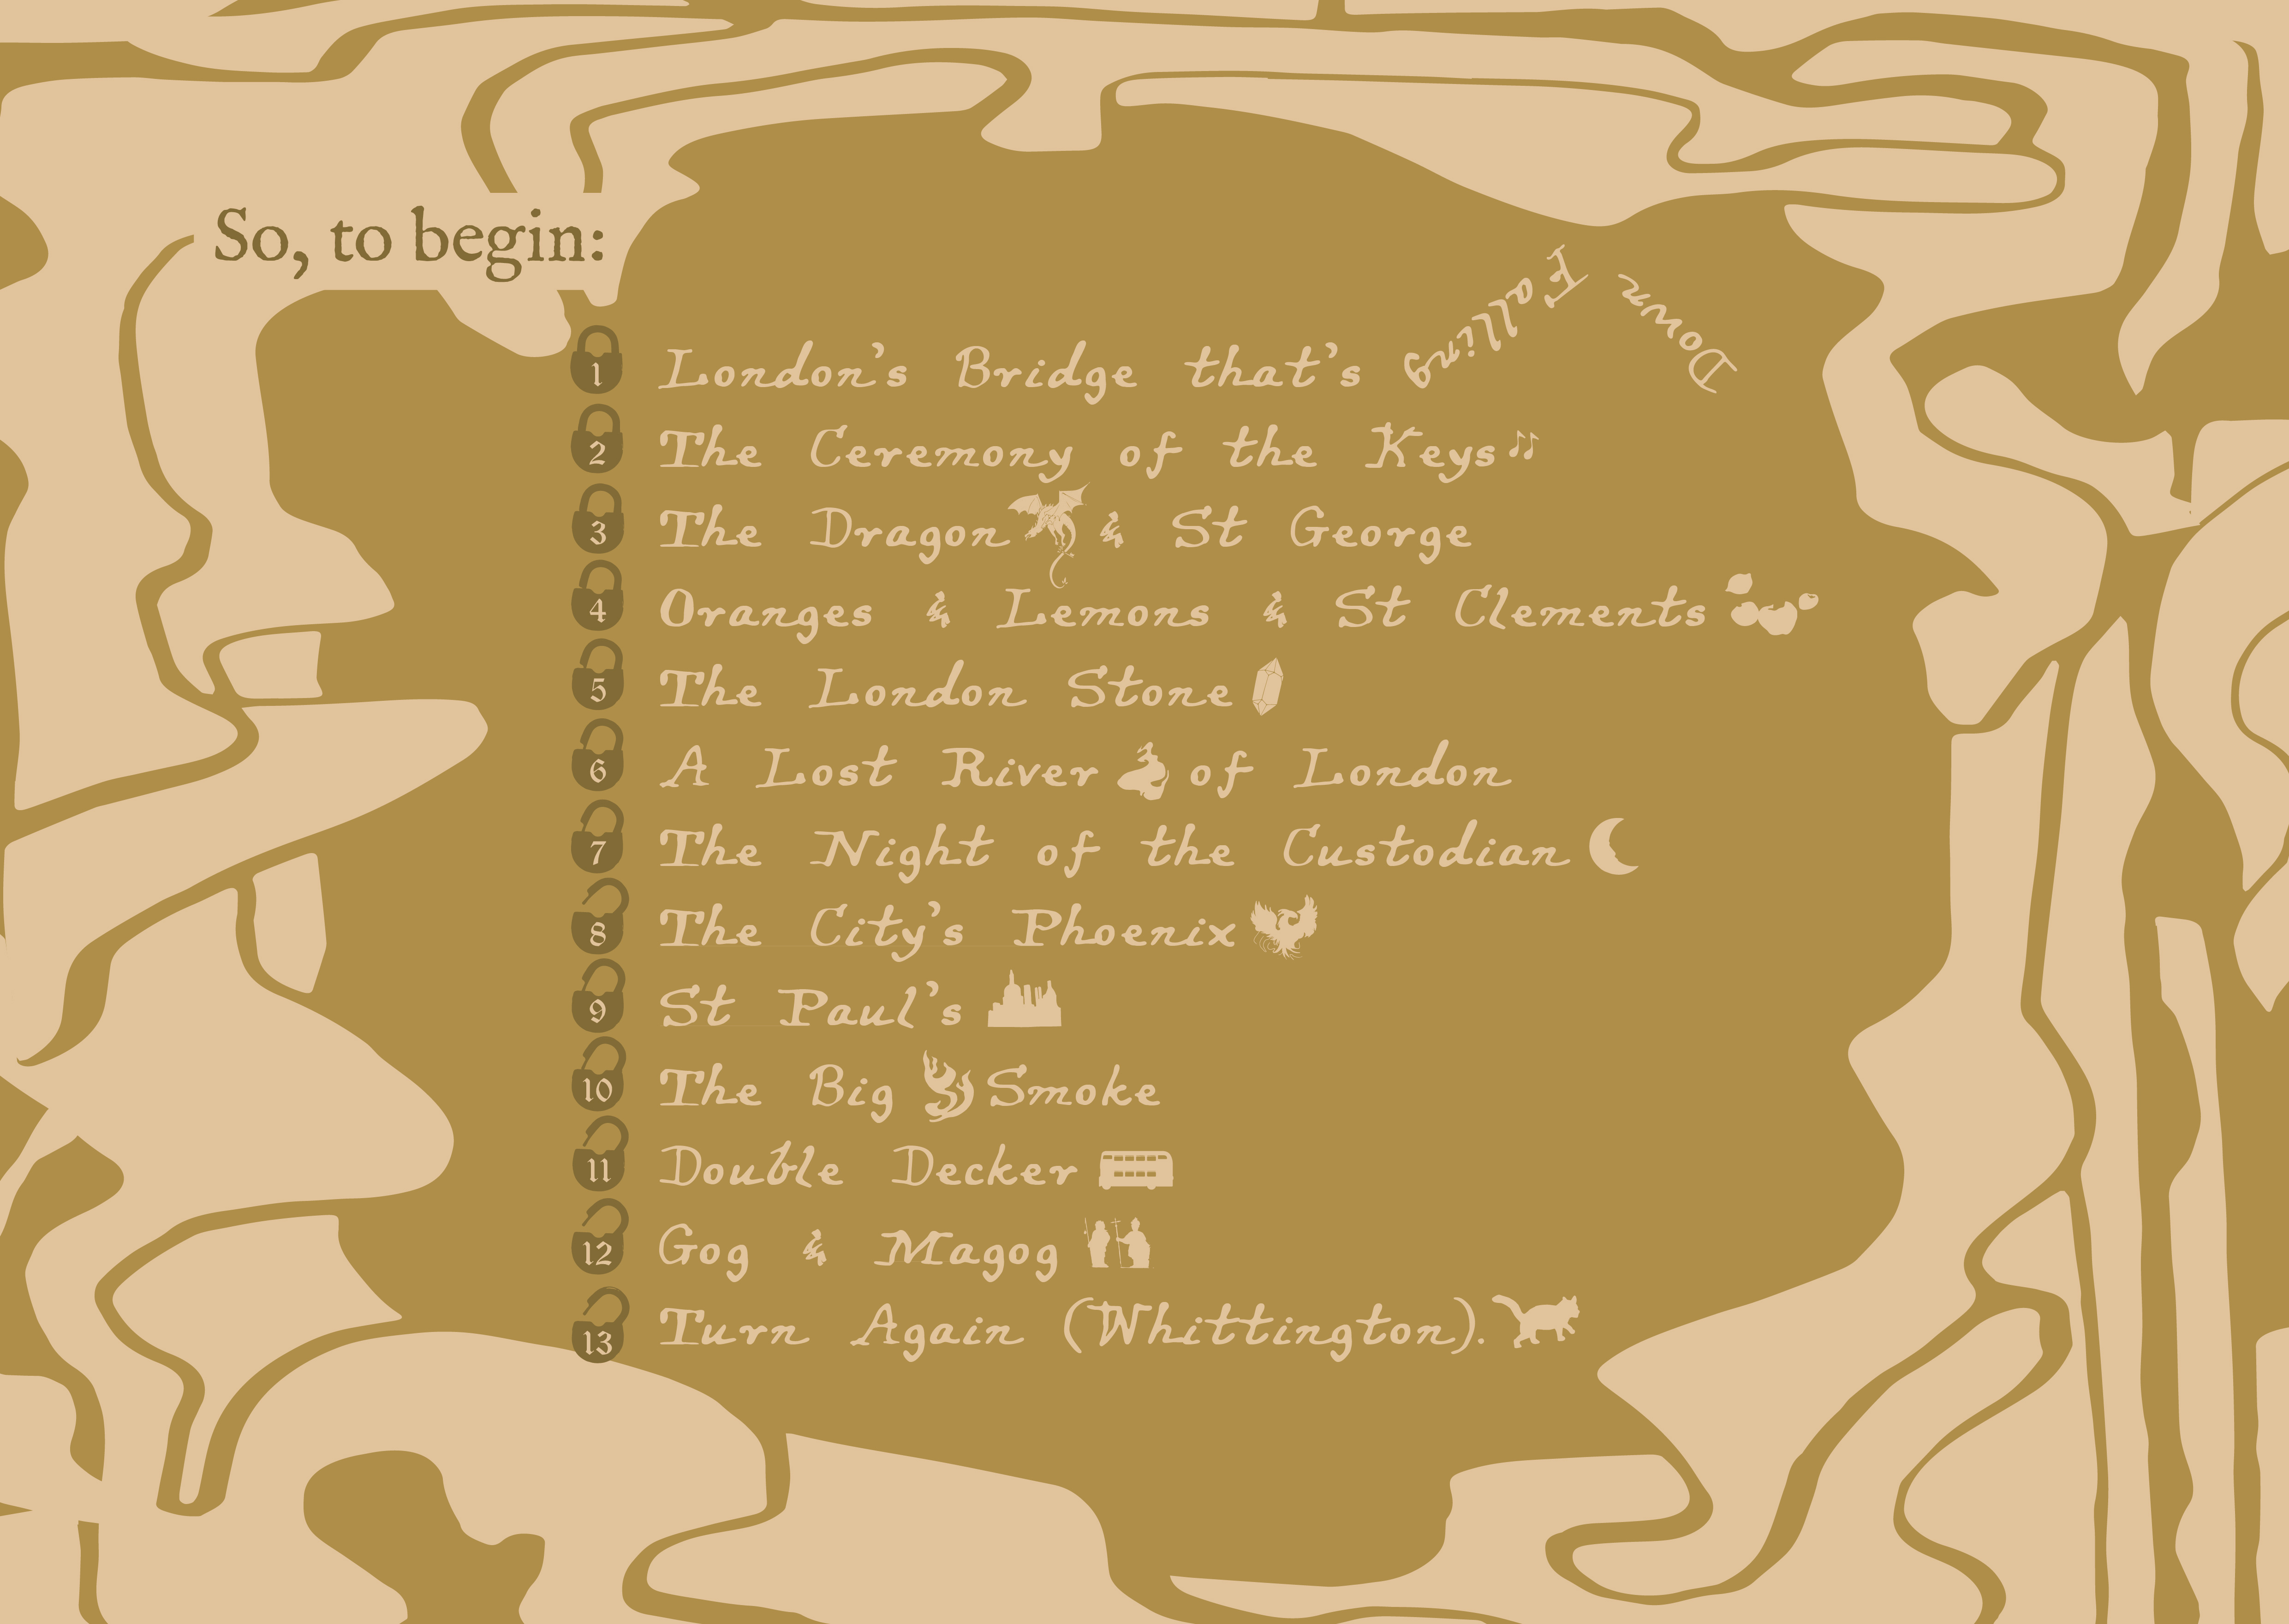 So, to begin:
1 London's Bridge that's Falling Down
2 The Ceremony of the Keys♫
3 The Dragon & St George
4 Oranges & Lemons & St Clements
5 The London Stone
6 A Lost River of London
7 The Night of the Custodian
8 The City's Phoenix
9 St Paul's
10 The Big Smoke
11 Double Decker
12 Gog & Magog
13 Turn Again (Whittington).